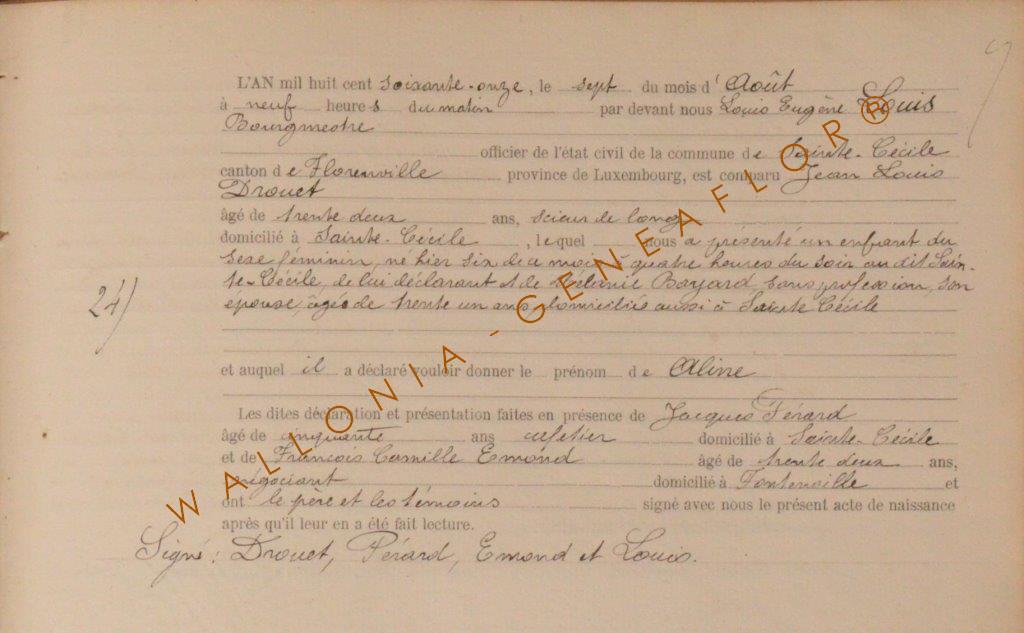 L'AN mil huit cent soixante-onze, le sept du mois d'Août
à neuf heures du matin par devant nous Louis Eugène Louis
Bourgmestre
officier de l'état civil de la commune de Sainte-Cécile
canton de Florenville province de Luxembourg, est comparu Jean Louis
Drouet
âgé de trente deux ans, scieur de long
domicilié à Sainte-Cécile, lequel nous a présenté un enfant du
sexe feminin, né hier six de ce mois à quatre heures du soir au dit Sain-
te-Cécile, de lui déclarant et de Mélanie Bayard, sans profession, son
24/
épouse, âgée de trente un ans, domiciliée aussi à Sainte Cécile
et auquel il a déclaré vouloir donner le prénom de Aline
Les dites déclaration et présentation faites en présence de Jacques Pérard
âgé de cinquante ans cafetier domicilié à Sainte-Cécile
et de François Camille Emond âgé de trente deux ans,
négociant domicilié à Fontenoille et
ont le père et les témoins signé avec nous le présent acte de naissance
après qu'il leur en a été fait lecture.
Signé: Drouet, Pérard, Emond et Louis.
WALLONIA-GENEAFLOR®